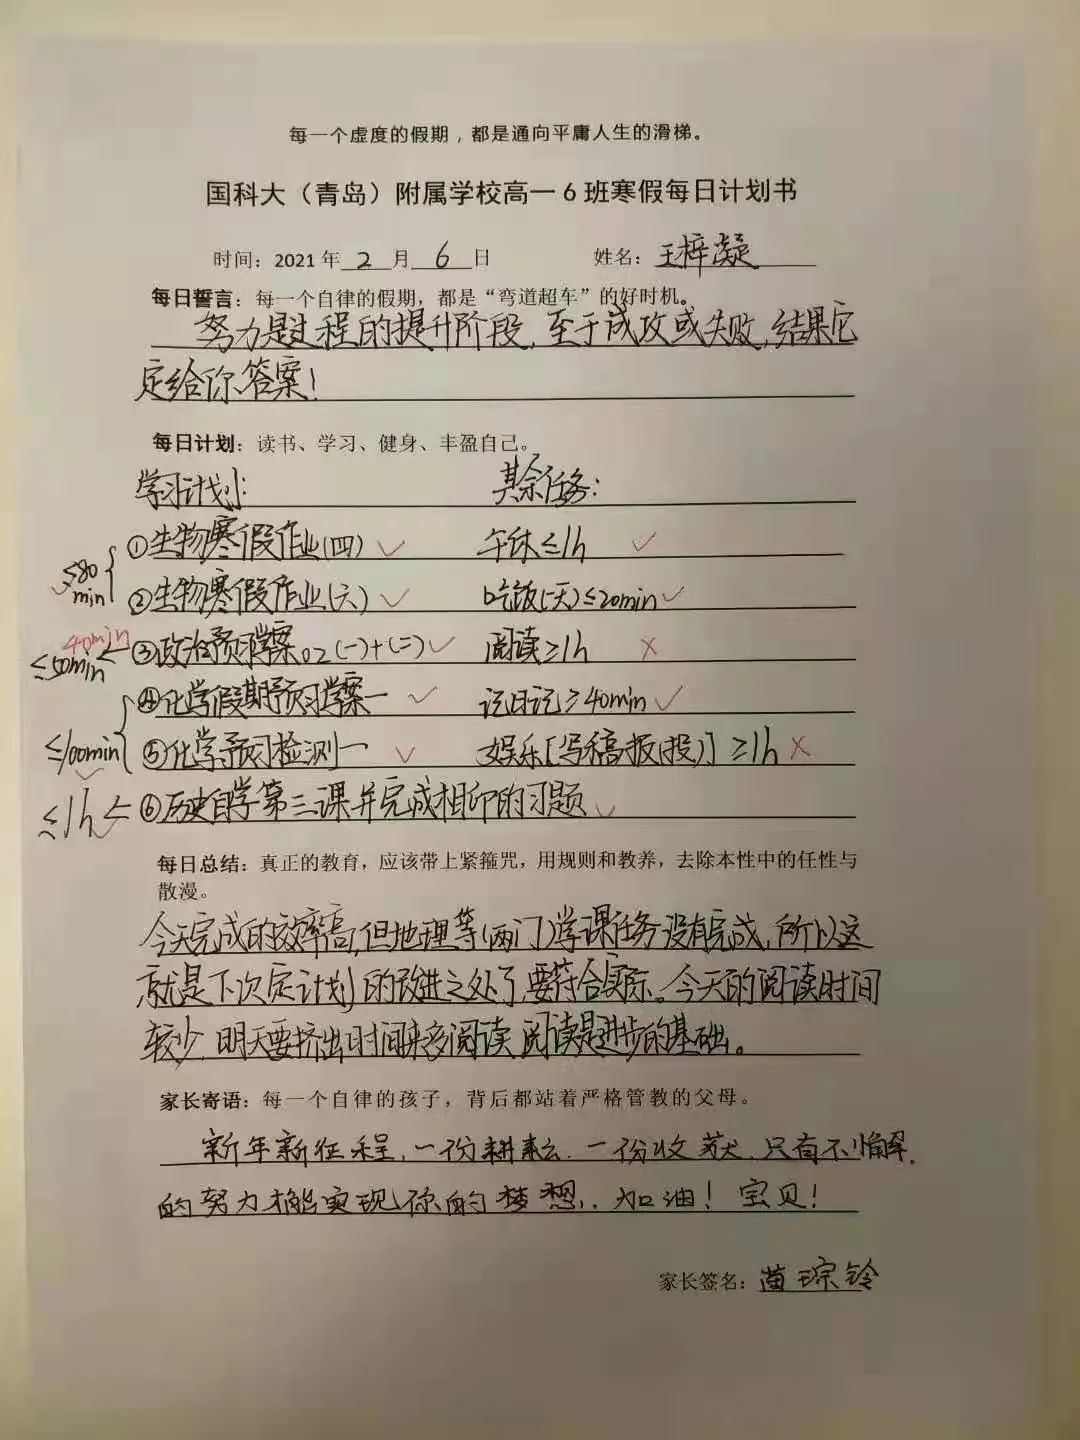 每一个虚度的假期，都是通向平庸人生的滑梯。
国科大（青岛）附属学校高一6班寒假每日计划书
时间：2021年2月6日 姓名：王梓凝
每日誓言：每一个自律的假期，都是“弯道超车”的好时机。
努力是过程的提升阶段，至于成攻或失败，结果它
定给你答案！
每日计划：读书、学习、健身、丰盈自己。
学习计划： 其余任务：
①生物寒假作业(四)✓ 午休≤1h ✓
✓≤80
min
②生物寒假作业(六)✓ 吃饭(一天)≤20min✓
40min
≤50min←③政治预习学案02(一)+(二)✓ 阅读≥1h ×
④化学假期预习学案一 ✓ 记日记≥40min✓
≤100min ⑤化学预习检测一 ✓ 娱乐[写稿报(投)]≥1h ×
≤1h←⑥历史自学第三课并完成相印的习题✓
每日总结：真正的教育，应该带上紧箍咒，用规则和教养，去除本性中的任性与
散漫。
今天完成的效率高，但地理等(两门)学课任务没有完成，所以这
就是下次定计划的改进之处了，要符合实际。今天的阅读时间
较少，明天要挤出时间来多阅读，阅读是进步的基础。
家长寄语：每一个自律的孩子，背后都站着严格管教的父母。
新年新征程，一份耕耘，一份收获，只有不懈
的努力才能实现你的梦想，加油！宝贝！
家长签名：苗琮铃